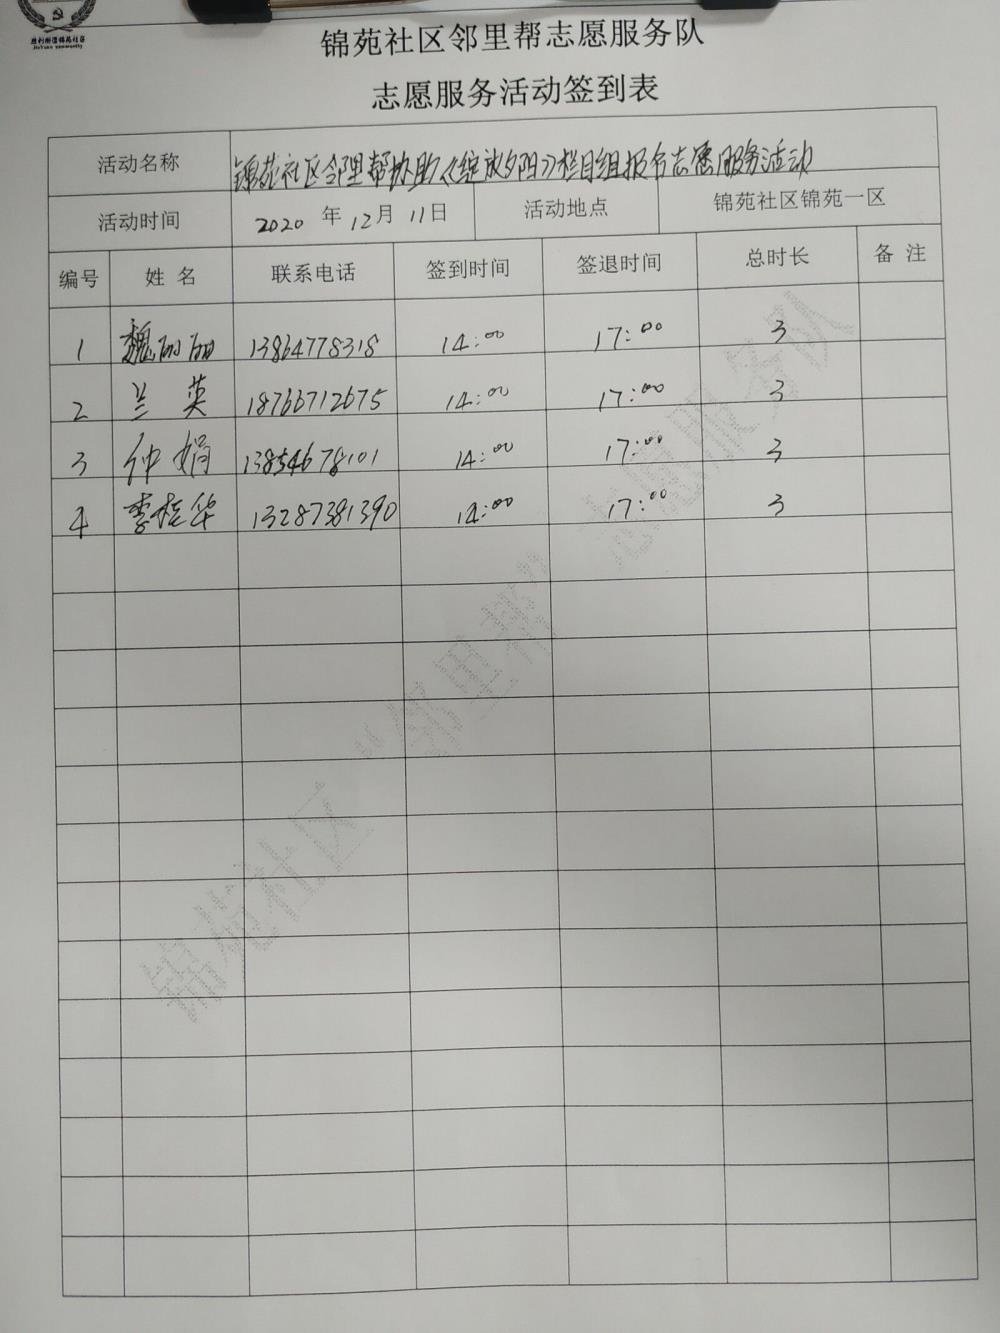 胜利街道锦苑社区
锦苑社区邻里帮志愿服务队
志愿服务活动签到表
活动名称 锦苑社区邻里帮协助《绽放夕阳》栏目组报名志愿服务活动
活动时间 2020 年 12 月 11 日 活动地点 锦苑社区锦苑一区
编号 姓 名 联系电话 签到时间 签退时间 总时长 备 注
1 魏丽丽 13864778318 14:00 17:00 3
2 兰 英 18766712675 14:00 17:00 3
3 仲 娟 13854678101 14:00 17:00 3
4 李桂华 13287381390 14:00 17:00 3
锦苑社区“邻里帮”志愿服务队